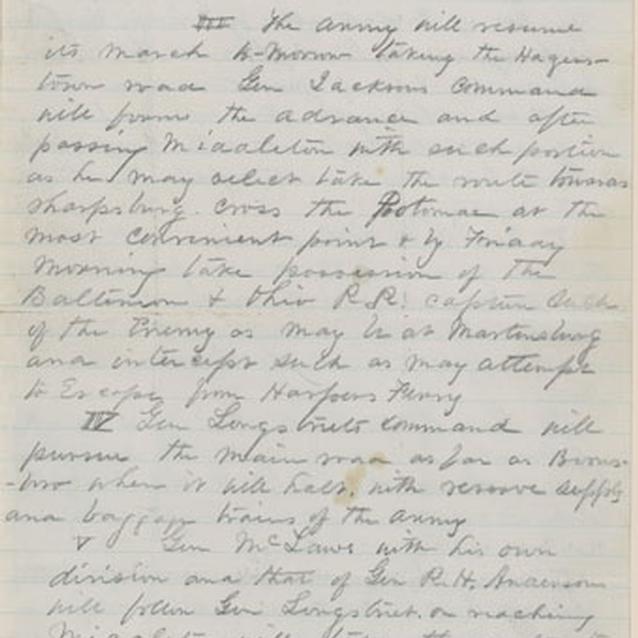 III The army will resume
its march to-morrow taking the Hagers-
town road Gen Jacksons Command
will form the advance and after
passing Middleton with such portion
as he may select take the route towards
Sharpsburg. cross the Potomac at the
most convenient point & by Friday
Morning take possession of the
Baltimore & Ohio R.R. capture such
of the Enemy as may be at Martinsburg
and intercept such as may attempt
to Escape from Harpers Ferry
IV Gen Longstreets Command will
pursue the main road as far as Boons-
-boro where it will halt, with reserve supply
and baggage trains of the army
V Gen McLaws with his own
division and that of Gen R.H. Anderson
will follow Gen Longstreet. on reaching
Middleton will take the